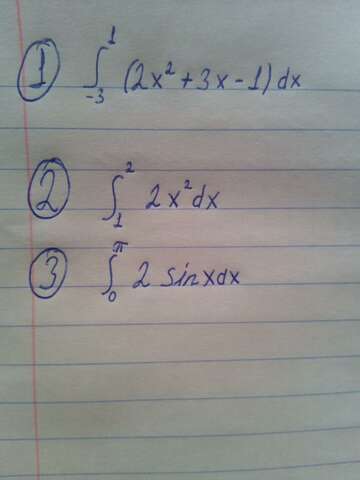 ① ∫₋₃¹ (2x² + 3x - 1) dx
② ∫₁² 2x² dx
③ ∫₀^π 2 sin x dx